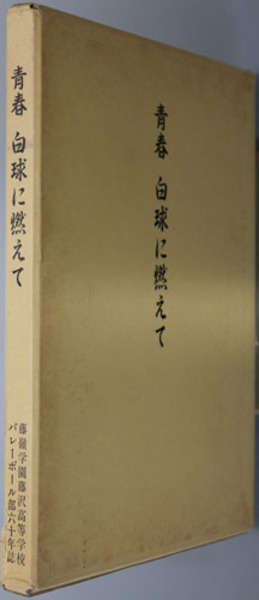 青春 白球に燃えて
青春 白球に燃えて
藤嶺学園藤沢高等学校
バレーボール部六十年誌